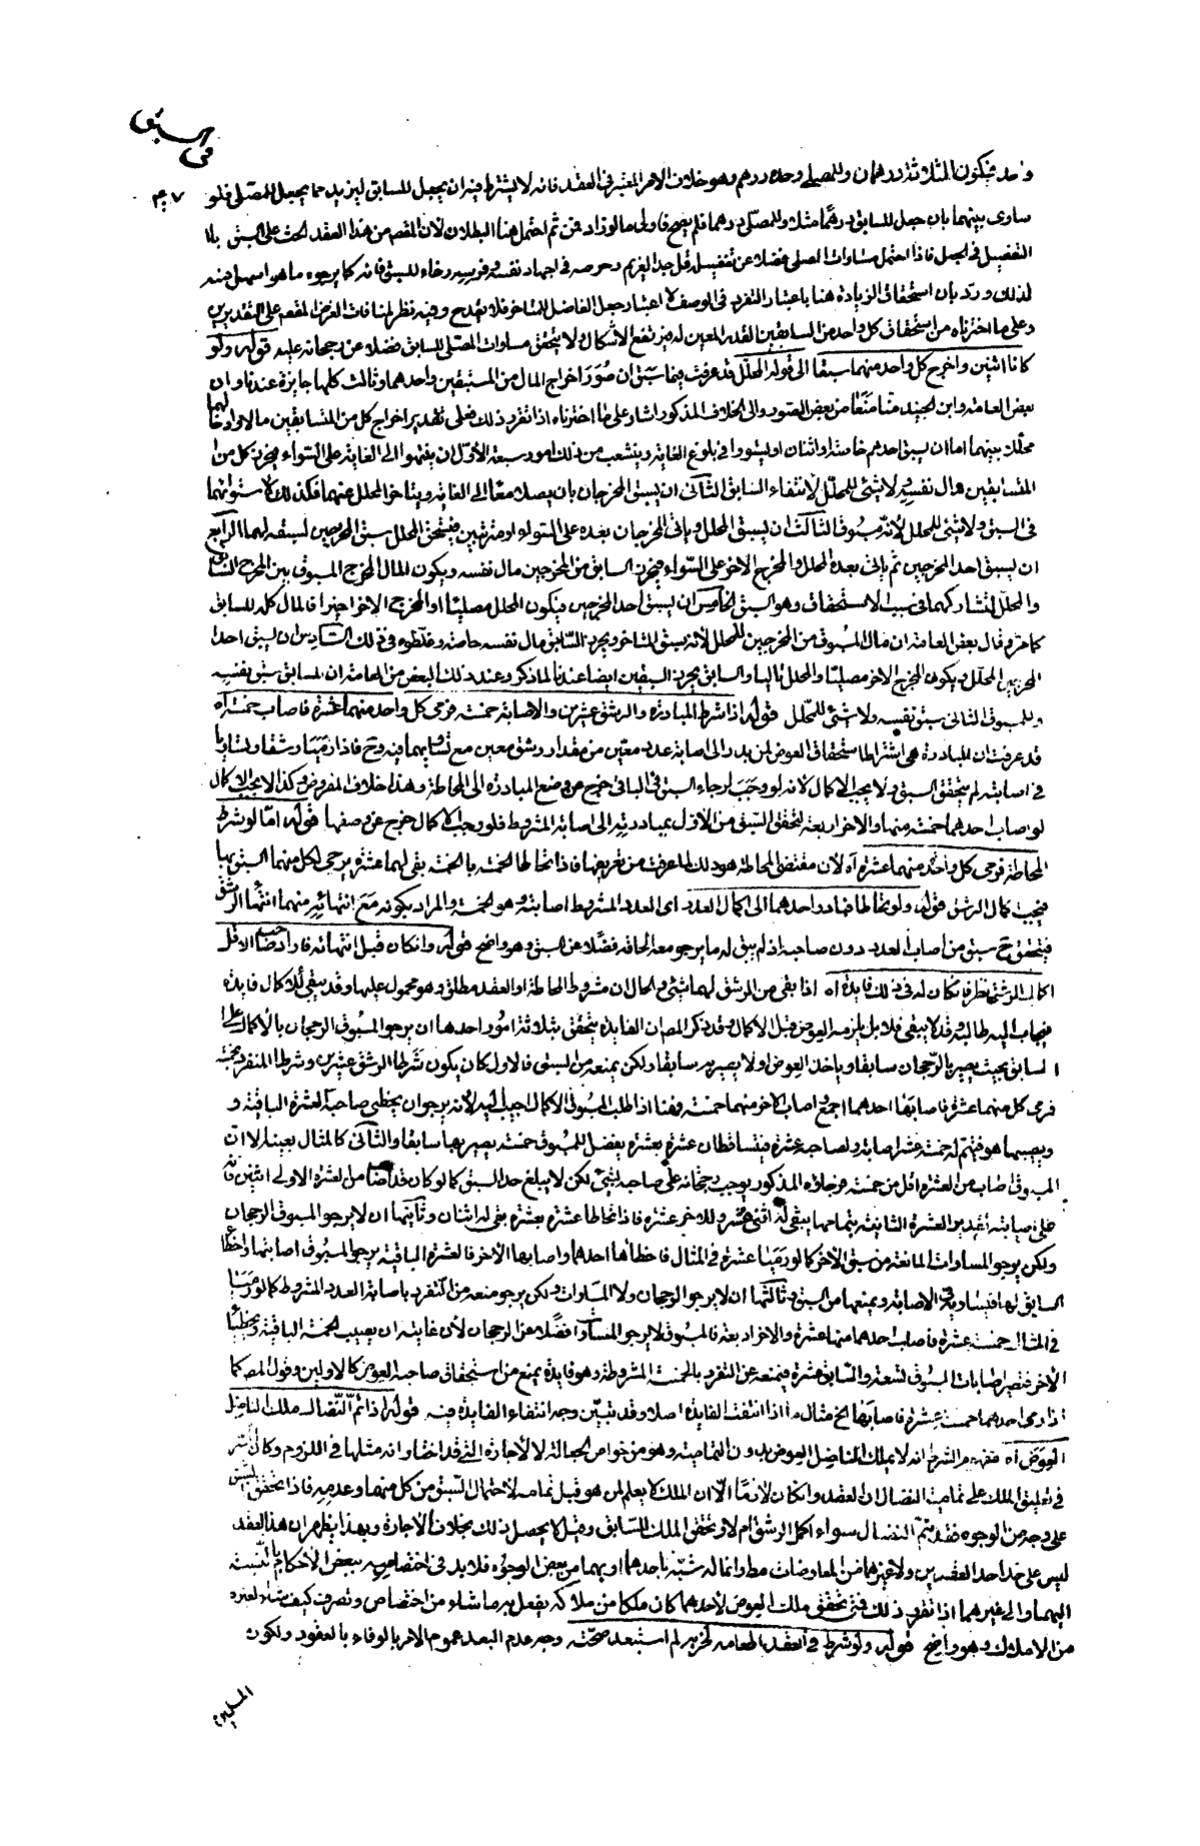 في السبق
٣٠٧
واحد فيكون للثلاثة درهمان وللمصلي وحده درهم وهو خلاف الامر المعتبر في العقد فانه لا يشترط فيه ان يجعل للسابق ازيد مما يجعل للمصلي فلو
ساوى بينهما بان جعل للسابق درهما مثلا وللمصلي درهما فلم يصح فاولى ما لو زاد فمن ثم احتمل هنا البطلان لان المقصد من هذا العقد الحث على السبق بالا
التفضيل في الجعل فاذا احتمل مساوات المصلي فضلا عن تفضيله قل جد الغريم وحرصه في اجهاد نفسه وفرسه رخاء للسبق فانه كما يرجوه ما هو اسهل منه
لذلك ورد بان استحقاق الزيادة هنا باعتبار التفرد في الوصف لا اعتبار جعل الفاضل للمتاخر فلا يقدح وفيه نظر لمنافات الغرض المقصد على التقديرين
وعلى ما اخترناه من استحقاق كل واحد من السابقين القدر المعين له يرتفع الاشكال ولا يتحقق مساوات المصلي للسابق فضلا عن رجحانه عليه قوله ولو
كانا اثنين واخرج كل واحد منهما سبقا الى قوله المحلل قد عرفت فيما سبق ان صور اخراج المال من المستبقين واحدهما وثالث كلها جايزة عندنا وان
بعض العامة وابن الجنيد منا منعا من بعض الصور والى الخلاف المذكور اشار على ما اخترناه اذا تقرر ذلك فعلى تقدير اخراج كل من المتسابقين مالا وادخلا
محللا بينهما اما ان يسبق احدهم خاصة او اثنان او يستووا في بلوغ الغاية ويتشعب من ذلك امور سبعة الاول ان ينتهوا الى الغاية على السواء فيحرز كل من
المتسابقين مال نفسه ولا شئ للمحلل لانتفاء السابق الثاني ان يسبق المخرجان بان يصلا معا الى الغاية ويتاخر المحلل عنهما فكذلك لاستوائهما
في السبق ولا شئ للمحلل لانه مسبوق الثالث ان يسبق المحلل وياتي المخرجان بعده على السواء او مترتبين فيستحق المحلل سبق المخرجين لسبقه لهما الرابع
ان يسبق احد المخرجين ثم ياتي بعده المحلل والمخرج الاخر على السواء فيحرز السابق من المخرجين مال نفسه ويكون المال المخرج المسبوق بين المخرج السابق
والمحلل لتشاركهما في سبب الاستحقاق وهو السبق الخامس ان يسبق احد المخرجين فيكون المحلل مصليا والمخرج الاخر اخيرا فالمال كله للسابق
كما مر وقال بعض العامة ان مال المسبوق من المخرجين للمحلل لانه يسبق المتاخر ويحرز السابق مال نفسه خاصة وغلطوه في ذلك السادس ان يسبق احد
المخرجين المحلل ويكون المخرج الاخر مصليا والمحلل تاليا والسابق يحرز السبقين ايضا عندنا لما ذكر وعند ذلك البعض من العامة ان للسابق سبق نفسه
وللمسبوق الثاني سبق نفسه ولا شئ للمحلل قوله اذا شرط المبادرة والرشق عشرين والاصابة خمسة فرمى كل واحد منهما عشرة فاصاب خمسة اه
قد عرفت ان المبادرة هي اشتراط استحقاق العوض لمن بدر الى اصابة عدد معين من مقدار رشق معين مع تساويهما فيه وح فاذا رميا رشقا وتساويا
في اصابته لم يتحقق السبق ولا يجب الاكمال لانه لو وجب لرجاء السبق في الباقي خرج عن وضع المبادرة الى المحاطة وهذا خلاف المفروض وكذا لا يجب الاكمال
لو اصاب احدهما خمسة منها والاخر اربعة لتحقق السبق من الاول بمبادرته الى اصابة المشروط فلو وجب الاكمال خرج عن وصفها قوله اما لو شرط
المحاطة فرمى كل واحد منهما عشرة اه لان مقتضى المحاطة هو ذلك لما عرفت من تعريفها فاذا تحاطا الخمسة بالخمسة بقى لهما عشرة يرجى لكل منهما السبق بها
فيجب كمال الرشق قوله ولو تحاطا فبادر احدهما الى اكمال العدد اى العدد المشروط اصابته وهو الخمسة والمراد بكونه مع انتهائه منهما انتهاء الرشق
فيتحقق ح سبق من اصاب العدد دون صاحبه اذ لم يبق له ما يرجو معه الحاقه فضلا عن السبق وهو واضح قوله وان كان قبل انتهائه فاراد صاحب الاقل
اكمال الرشق نظر فان كان له في ذلك فايدة اه اذا بقى من الرشق لهما شئ والحال ان شروط المحاطة او العقد مطلق وهو محمول عليها وقد يبقى للاكمال فايدة
فيجاب اليه طالبه وقد لا يبقى فلا بل يلزمه العوض قبل الاكمال وقد ذكر المص ان الفايدة يتحقق بثلاثة امور احدها ان يرجو المسبوق الرجحان بالاكمال على
السابق بحيث يصير بالرجحان سابقا وياخذ العوض او لا يصير به سابقا ولكن يمنعه من السبق فالاول كان يكون شرطا الرشق عشرين وشرطا التفرد بخمسة
فرمى كل منهما عشرة فاصابها احدهما اجمع واصاب الاخر منها خمسة فهنا اذا طلب المسبوق الاكمال اجيب اليه لانه يرجو ان يخطى صاحبه العشرة الباقية و
ويصيبها هو فيتم له خمسة عشر اصابة ولصاحبه عشرة فيتساقطان عشرة بعشرة يفضل للمسبوق خمسة يصير بها سابقا والثاني كالمثال بعينه الا ان
المسبوق اصاب من العشرة اقل من خمسة فرجاؤه المذكور يوجب رجحانه على صاحبه بشئ لكن لا يبلغ حد السبق كما لو كان قد اصاب من العشرة الاولى اثنين فانه
على اصابته تقدير العشرة الثانية بتمامها يبقى له اثنى عشر وللاخر عشرة فاذا تحاطا عشرة بعشرة بقى له اثنان وثانيها ان لا يرجو المسبوق الرجحان
ولكن يرجو المساوات المانعة من سبق الاخر كما لو رميا عشرة في المثال فاخطأها احدهما واصابها الاخر فالعشرة الباقية يرجو المسبوق اصابتها واخطاء
السابق لها فيتساويا في الاصابة ويمنعها من السبق وثالثها ان لا يرجو الرجحان ولا المساوات ولكن يرجو منعه من التفرد باصابة العدد المشروط كما لو رميا
في المثال خمسة عشر فاصاب احدهما منها عشرة والاخر اربعة فالمسبوق لا يرجو المساوات فضلا عن الرجحان لان غايته ان يصيب الخمسة الباقية ويخطئها
الاخر فتصير اصابات المسبوق تسعة والسابق عشرة فيمنعه عن التفرد بالخمسة المشروطة وهو فايدة يمنع من استحقاق صاحبه العوض كالاولين وقول المص كما
اذا رمى احدهما خمسة عشر فاصابها الخ مثال ما اذا انتفت الفايدة اصلا وقد تبين وجه انتفاء الفايدة فيه قوله اذا تم النضال ملك الناضل
العوض اه مفهوم الشرط انه لا يملك الناضل العوض بدون التمامية وهو من خواص الجعالة لا الاجارة التي قد اختار انه مثلها في اللزوم وكان السر
في تعليق الملك على تمامية النضال ان العقد وان كان لازما الا ان الملك لا يعلم لمن هو قبل تمامه لاحتمال السبق من كل منهما وعدمه فاذا تحقق السبق
على وجه من الوجوه فقد تم النضال سواء اكمل الرشق ام لا وتحقق الملك للسابق وقبله لا يحصل ذلك بخلاف الاجارة وبهذا يظهر ان هذا العقد
ليس على حد احد العقدين ولا غيرهما من المعاوضات مط وانما له شبه باحدهما او بهما من بعض الوجوه فلا بد في اختصاصه ببعض الاحكام بالنسبة
اليهما والى غيرهما اذا تقرر ذلك فمتى تحقق ملك العوض لاحدهما كان ملكا من املاكه يفعل به ما شاء من اختصاص وتصرف كيف شاء لغيره
من الاملاك وهو واضح قوله ولو شرط في العقد اطعامه لحزبه لم استبعد صحته وجه عدم البعد عموم الامر بالوفاء بالعقود ولكون
المسلمين